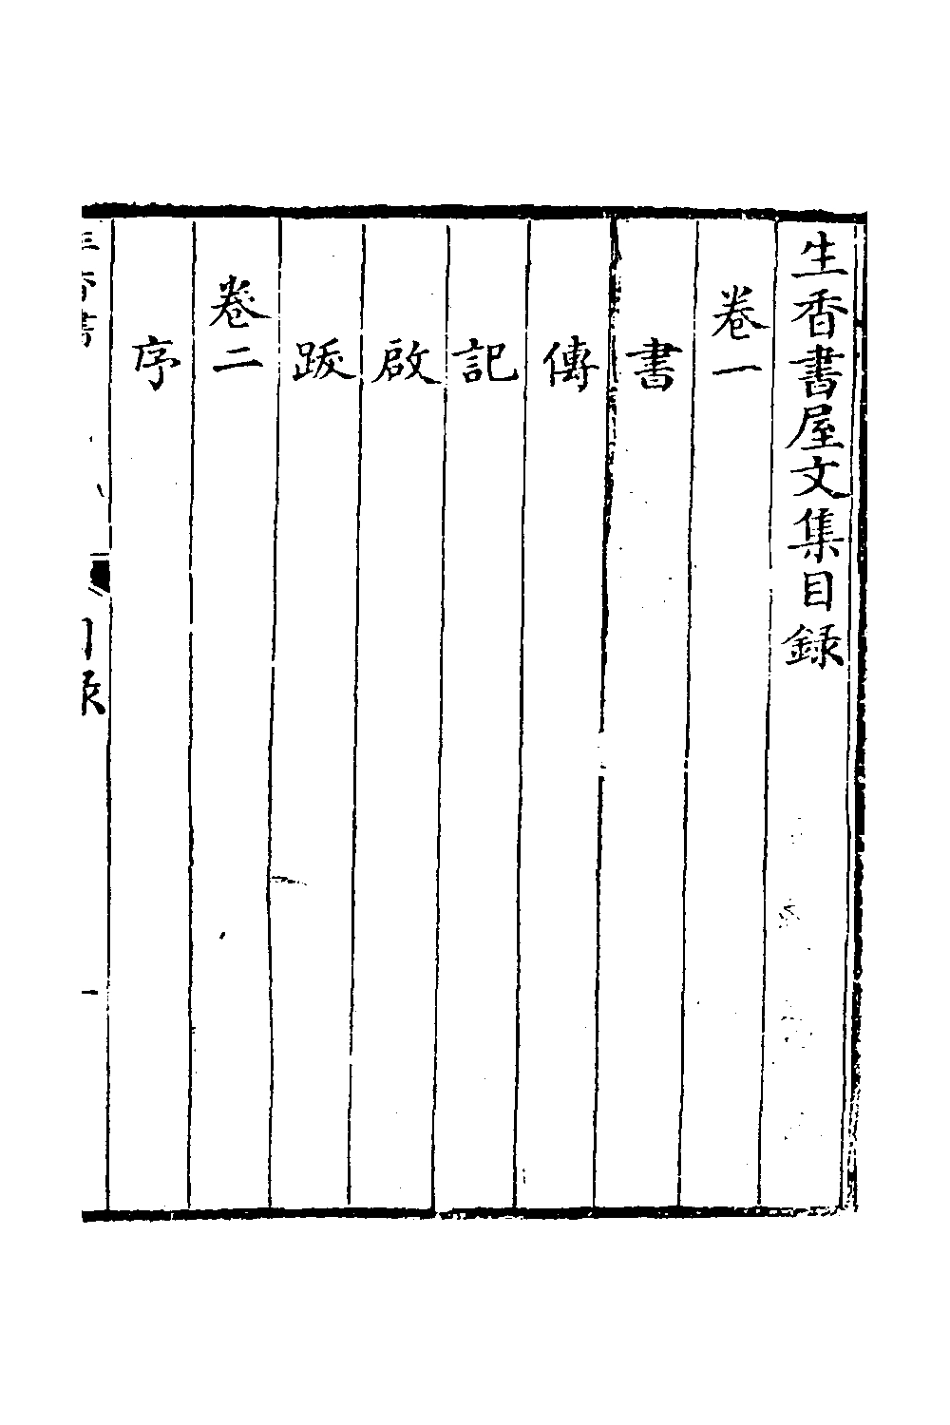 生香書屋文集目錄
卷一
書
傳
記
啟
跋
卷二
序